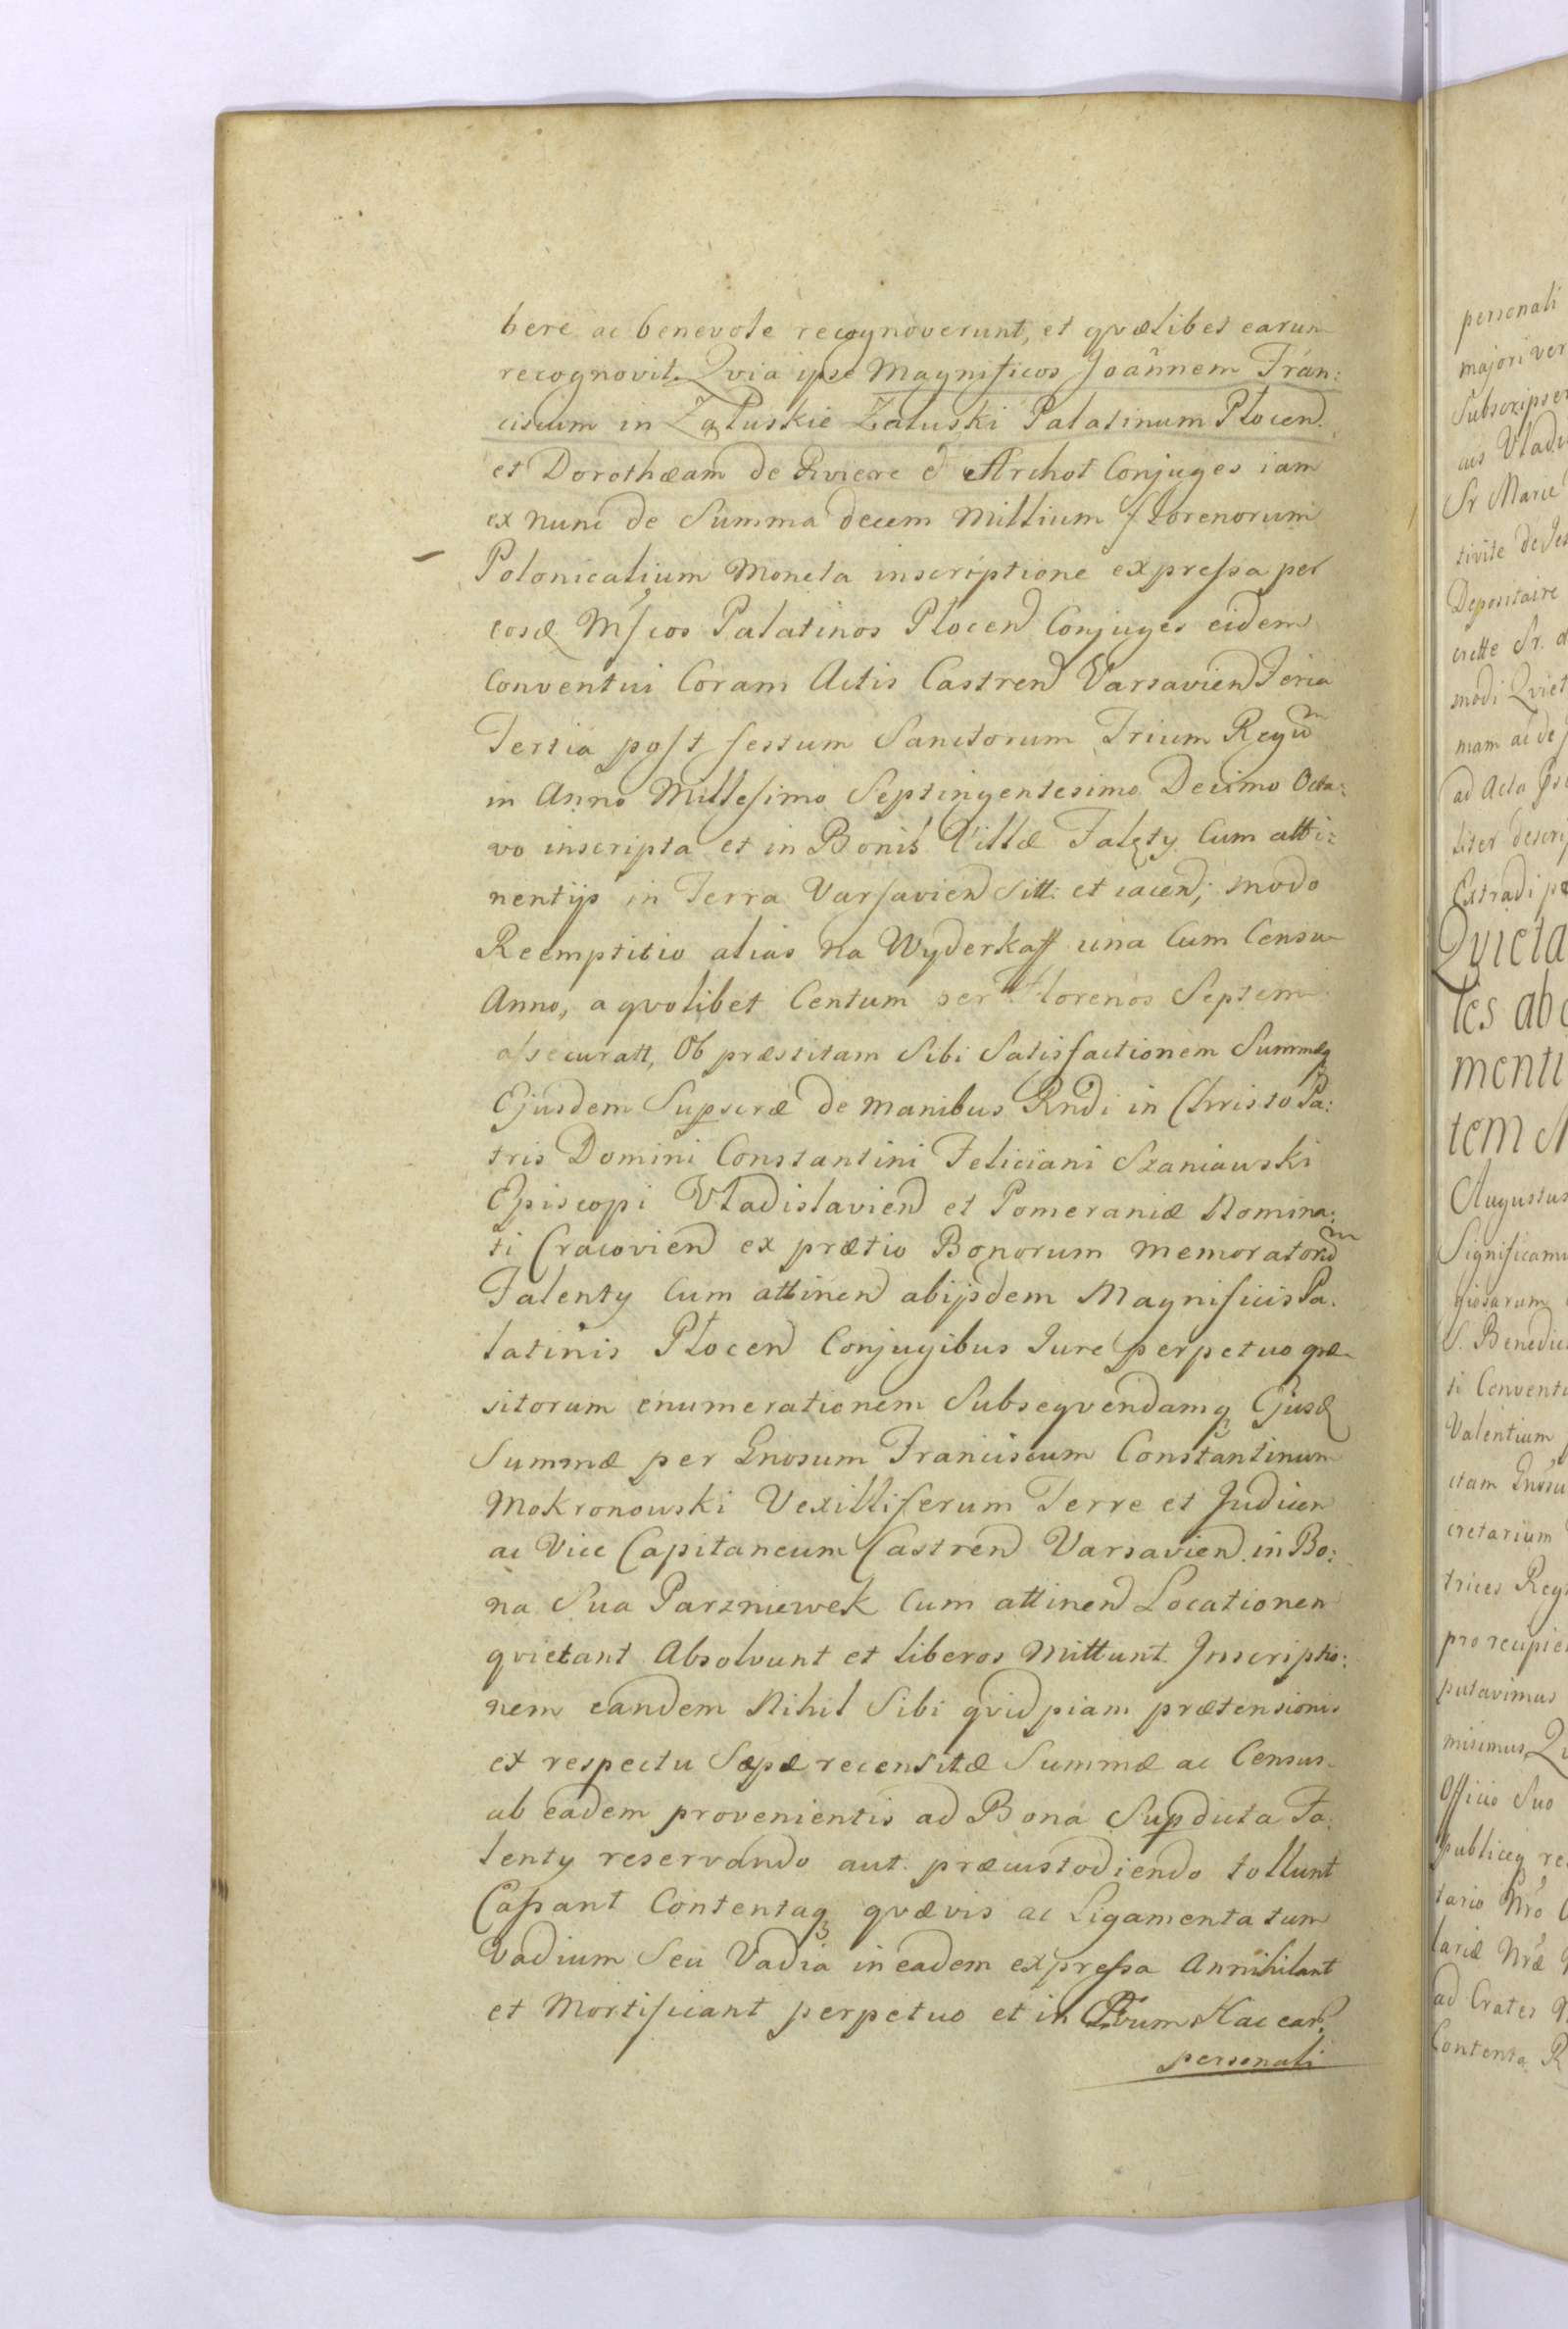 bere ac benevole recognoverunt, et qvælibet earum
recognovit. Qvia ipse Magnificos Joannem Fran:
ciscum in Załuskie Załuski Palatinum Płocen.
et Dorothæam de Riviere d' Archot Conjuges iam
ex nunc de Summa decem Millium florenorum
Polonicalium Moneta inscriptione expressa per
eosd Mfcos Palatinos Płocen Conjuges eidem
Conventui Coram Actis Castren Varsavien Feria
Tertia post festum Sanctorum Trium Regum
in Anno Millesimo Septingentesimo Decimo Octa:
vo inscripta et in Bonis Villæ Falęty Cum atti:
nentijs in Terra Varsavien Sitt: et iacen; modo
Reemptitio alias na Wyderkaff una Cum Censu
Anno, a qvolibet Centum per Florenos Septem
assecuratt, Ob præstitam Sibi Satisfactionem Summæ
Ejusdem Supscræ de manibus Rndi in Christo Pa:
tris Domini Constantini Feliciani Szaniawski
Episcopi Vladislavien et Pomeraniæ Nomina:
ti Cracovien ex prætio Bonorum memoratorum
Falenty Cum attinen ab ijsdem Magnificis Pa:
latinis Płocen Conjugibus Jure perpetuo qvæ
sitorum enumerationem Subseqvendamq Ejusd
Summæ per Gnosum Franciscum Constantinum
Mokronowski Vexilliferum Terre et Judicem
ac Vice Capitaneum Castren Varsavien. in Bo:
na Sua Parzniewek Cum attinen Locationem
qvietant Absolvunt et liberos Mittunt. Inscriptio:
nem eandem Nihil Sibi qvidpiam prætensionis
ex respectu Sæpæ recensitæ Summæ ac Census
ab eadem provenientis ad Bona Supdicta Fa:
lenty reservando aut præcustodiendo tollunt
Cassant Contentaq qvævis ac Ligamenta tum
Vadium Seu Vadia in eadem expressa Annihilant
et Mortificant perpetuo et in Ævum Hac ear.
personali
personali
majori ver
Subscripser
cus Vladi
Sr Marie
tivite de Jes
Depositaire
crette Sr. d
modi Qviet
mam ac de
ad Acta
liter descri
Extradi
Qvieta
les ab
menti
tem
Augustus
Significamu
giosarum
S. Benedic
ti Conventu
Valentium
ctam Gnosu
cretarium
trices Reg
pro recipie
putavimus
misimus Qv
Officio Suo
publiceq re
tario Nro
lariæ Nræ
ad Crates
Contenta R